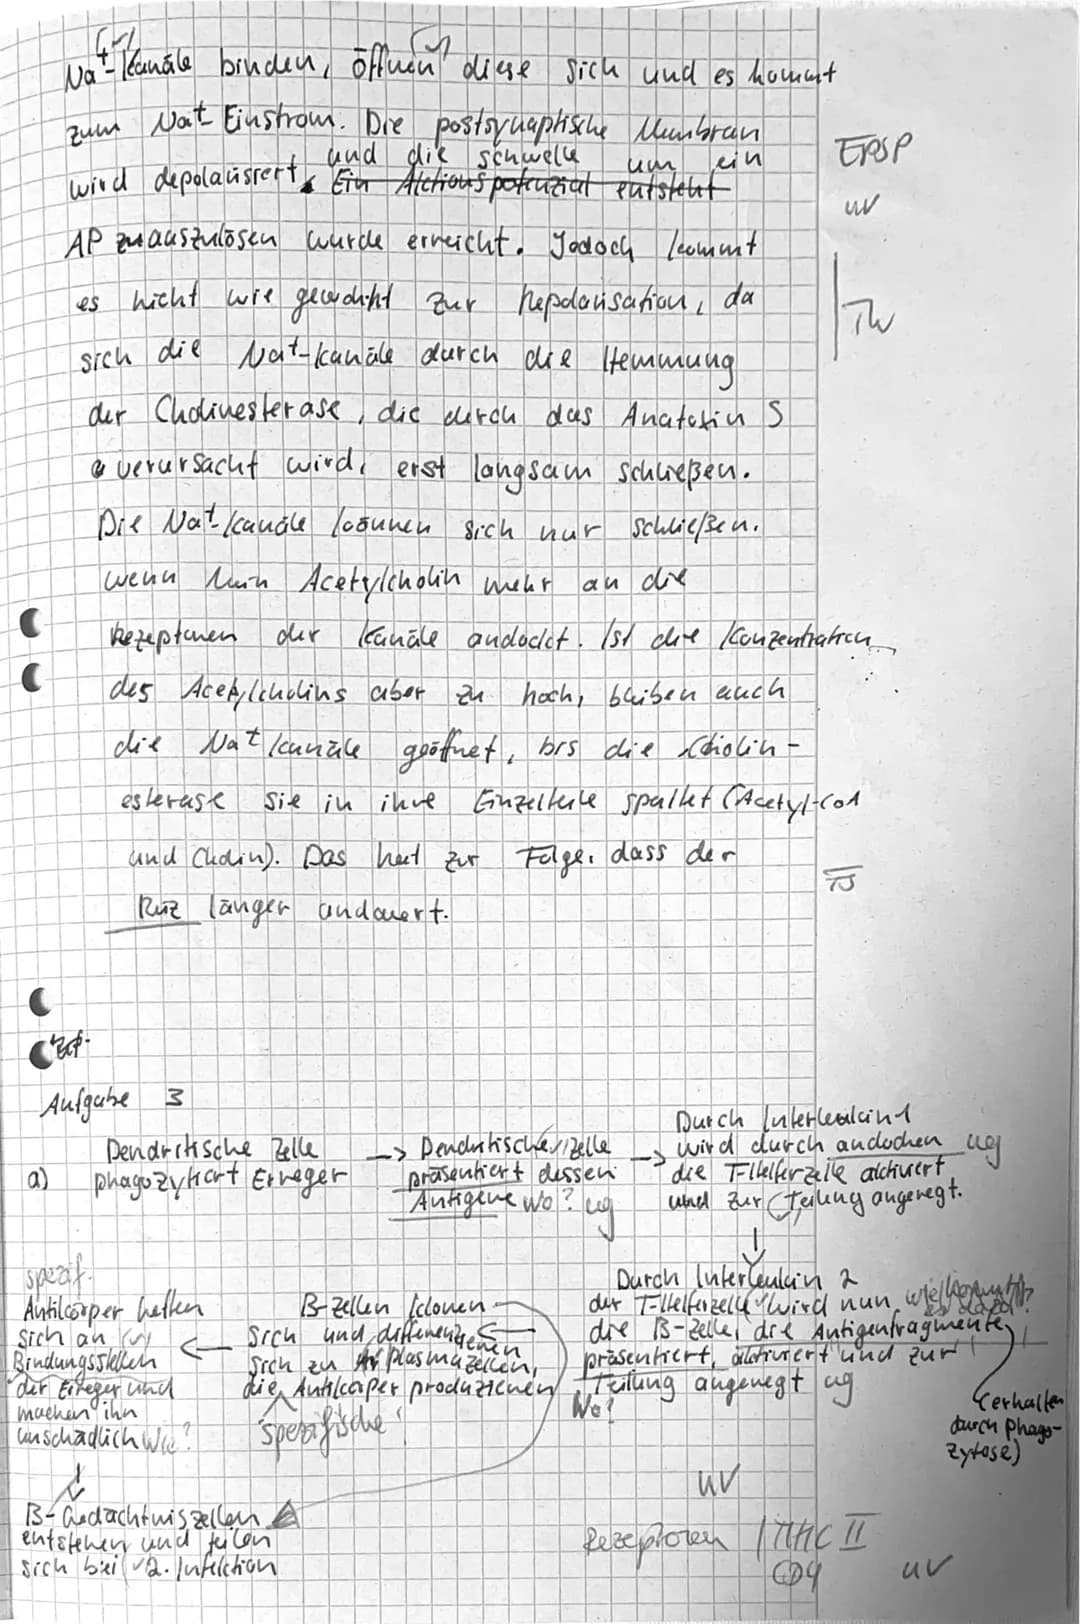 Na⁺-Kanäle binden, öffnen diese sich und es kommt
zum Na⁺-Einstrom. Die postsynaptische Membran
EPSP
und die schwelle um ein
wird depolarisiert. Ein Aktionspotenzial entsteht
uv
AP zu auszulösen wurde erreicht. Jedoch kommt
es nicht wie gewohnt zur Repolarisation, da
TW
sich die Na⁺-Kanäle durch die Hemmung
der Cholinesterase, die durch das Anatoxin S
verursacht wird, erst langsam schließen.
Die Na⁺-Kanäle können sich nur schließen,
wenn kein Acetylcholin mehr an die
Rezeptoren der Kanäle andockt. Ist die Konzentration
des Acetylcholins aber zu hoch, bleiben auch
die Na⁺ Kanäle geöffnet, bis die Cholin-
esterase sie in ihre Einzelteile spaltet (Acetyl-CoA
und Cholin). Das hat zur Folge, dass der
Reiz länger andauert.
Aufgabe 3
a) Dendritische Zelle
phagozytiert Erreger
→ Dendritische Zelle
präsentiert dessen
Antigene Wo? ug
→ Durch Interleukin 1
wird durch andocken ug
die T-Helferzelle aktiviert
und zur Teilung angeregt.
↓
Durch Interleukin 2
der T-Helferzelle wird nun wie kommt es dazu?
die B-Zelle, die Antigenfragmente
präsentiert, aktiviert und zur
Teilung angeregt ug
Wo?
(erhalten
durch Phago-
zytose)
← B-Zellen klonen
sich und differenzieren
sich zu Plasmazellen,
die Antikörper produzieren
spezifische!
← spezif.
Antikörper heften
sich an (v)
Bindungsstellen
der Erreger und
machen ihn
unschädlich Wie?
↓
B-Gedächtniszellen
entstehen und teilen
sich bei 2. Infektion
uv
Rezeptoren / MHC II
CD4
uv